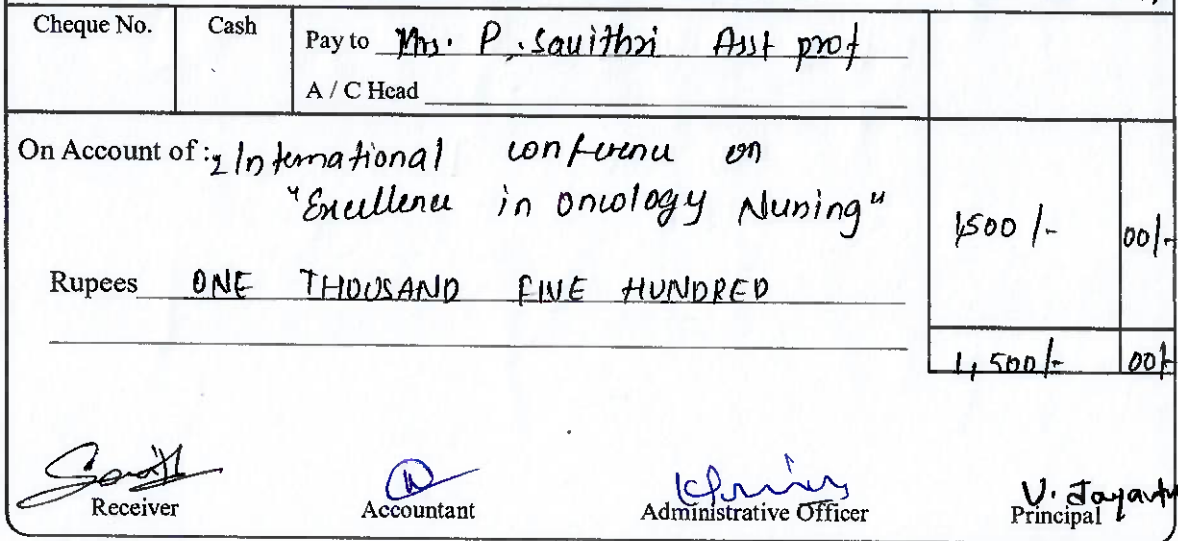 Cheque No. Cash Pay to Mrs. P. Savithri Asst prof
A / C Head
On Account of : International conference on
"Excellence in oncology Nursing"
1,500 /- 00/-
Rupees ONE THOUSAND FIVE HUNDRED
1,500/- 00/-
Receiver Accountant Administrative Officer V. Jayanthi
Principal